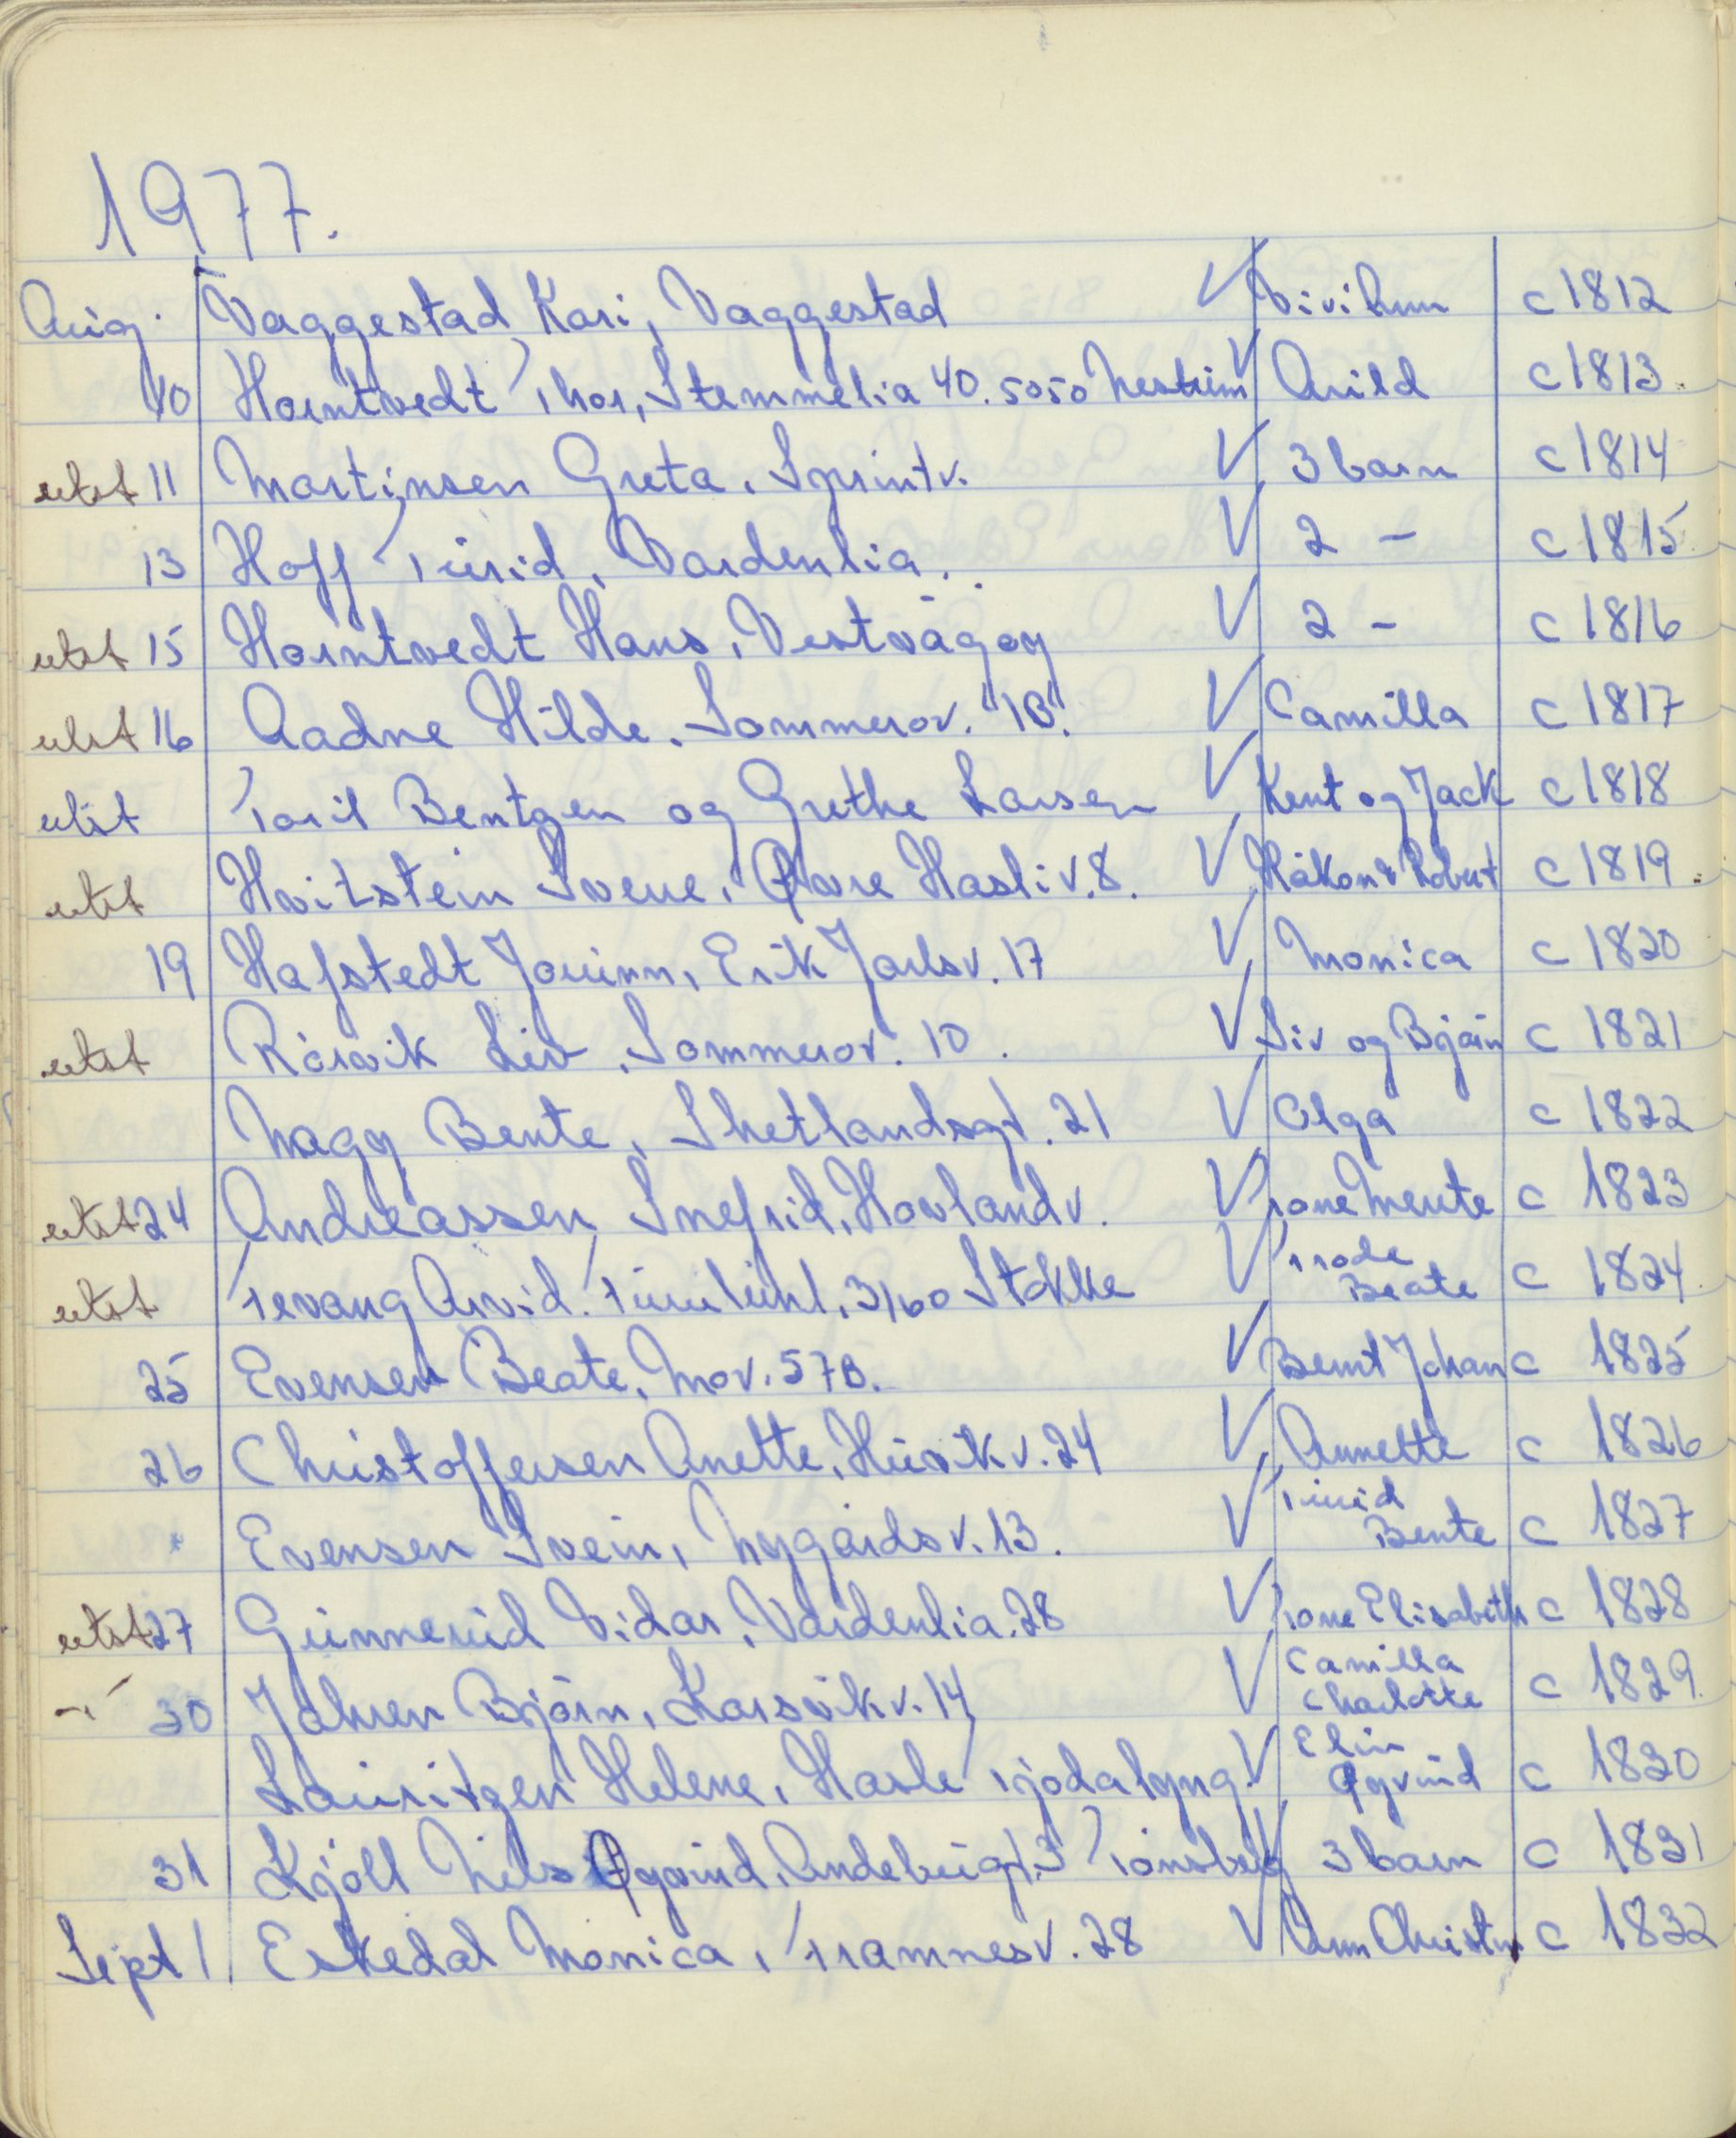 1977.
Aug. Vaggestad Kari, Vaggestad V Vivi Ann c 1812
10 Horntvedt Thor, Stemmelia 40. 5050 Nesttun V Arild c 1813.
utst 11 Martinsen Greta, Sprintv. V 3 barn c 1814
13 Hoff Turid, Vardenlia. V 2 - c 1815
utst 15 Horntvedt Hans, Vestvågøy V 2 - c 1816
utst 16 Aadne Hilde, Sommerov. "10" V Camilla c 1817
utst Toril Bentzen og Grethe Larsen V Kent og Jack c 1818
utst Hvitstein Svene, Øvre Hasliv. 8. V Håkon & Robert c 1819.
19 Hafstedt Jouinn, Erik Jarlsv. 17 V Monica c 1820
utst Rörvik Liv, Sommerov. 10. V Siv og Björn c 1821
Nagy Bente, Shetlandsgt. 21 V Olga c 1822
utst 24 Andreassen Snefrid, Hovlandv. V Tone Merete c 1823
utst Tevang Arvid. 3160 Stokke V Trode Beate c 1824.
25 Evensen Beate, Mov. 57B. V Bent Johan c 1825
26 Christoffersen Anette, Husvikv. 24 V Annette c 1826
Evensen Svein, Nygårdsv. 13. V Turid Bente c 1827
utst 27 Gunnerud Vidar, Vardenlia. 28 V Tone Elisabeth c 1828
-"- 30 Jahren Björn, Karsvikv. 14 V Camilla Charlotte c 1829.
Lauritzen Helene, Hasle Tjodalyng. V Elin Øyvind c 1830
31 Kjöll Nils Øyvind, Andebugt. 3 Tönsberg V 3 barn c 1831
Sept 1 Eskedal Monica, Tramnesv. 28 V Ann Christin c 1832